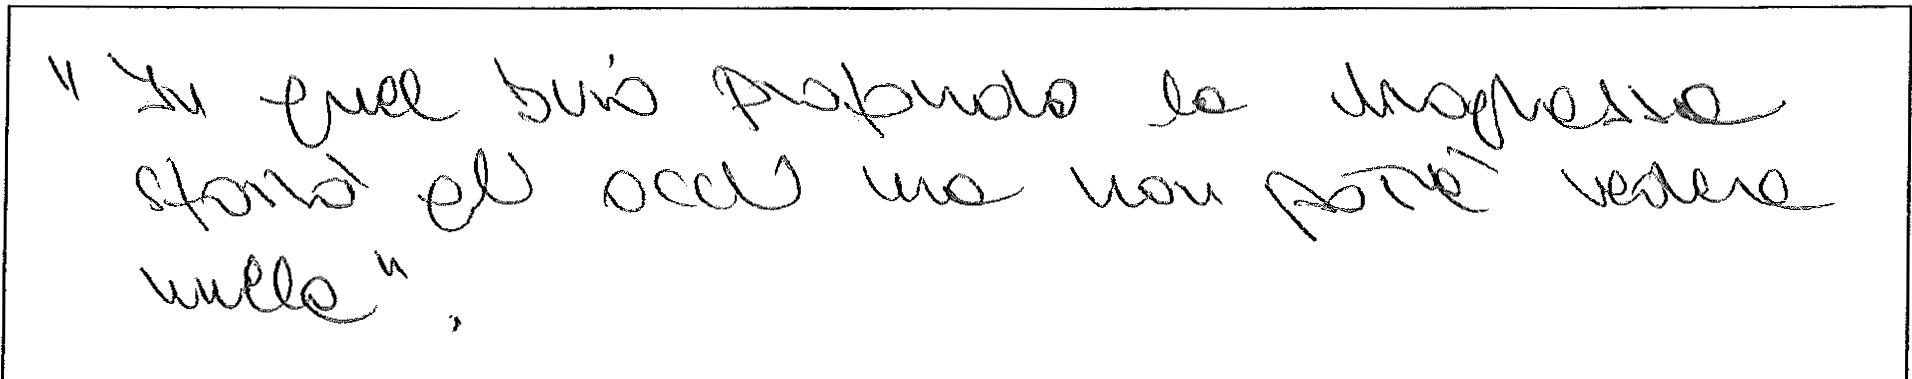 "In quel buio profondo la
sforzò gli occhi ma non potè vedere
nulla".